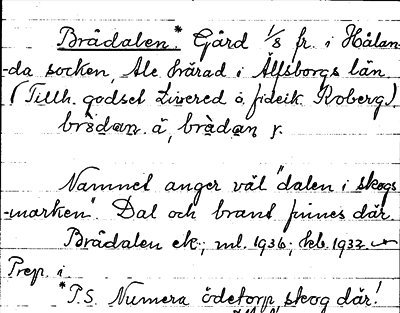 Brådalen.* Gård 1/8 fr. i Hålan-
-da socken, Ale härad i Älfsborgs län
(Tillh. godset Livered o. fideik Koberg)
brådan. å, brådan y.
Namnet anger väl "dalen i skogs
-marken". Dal och brant finnes där.
Brådalen ek.; ml. 1936; hb. 1932.
Prep. i
*P.S. Numera ödetorp, skog där!